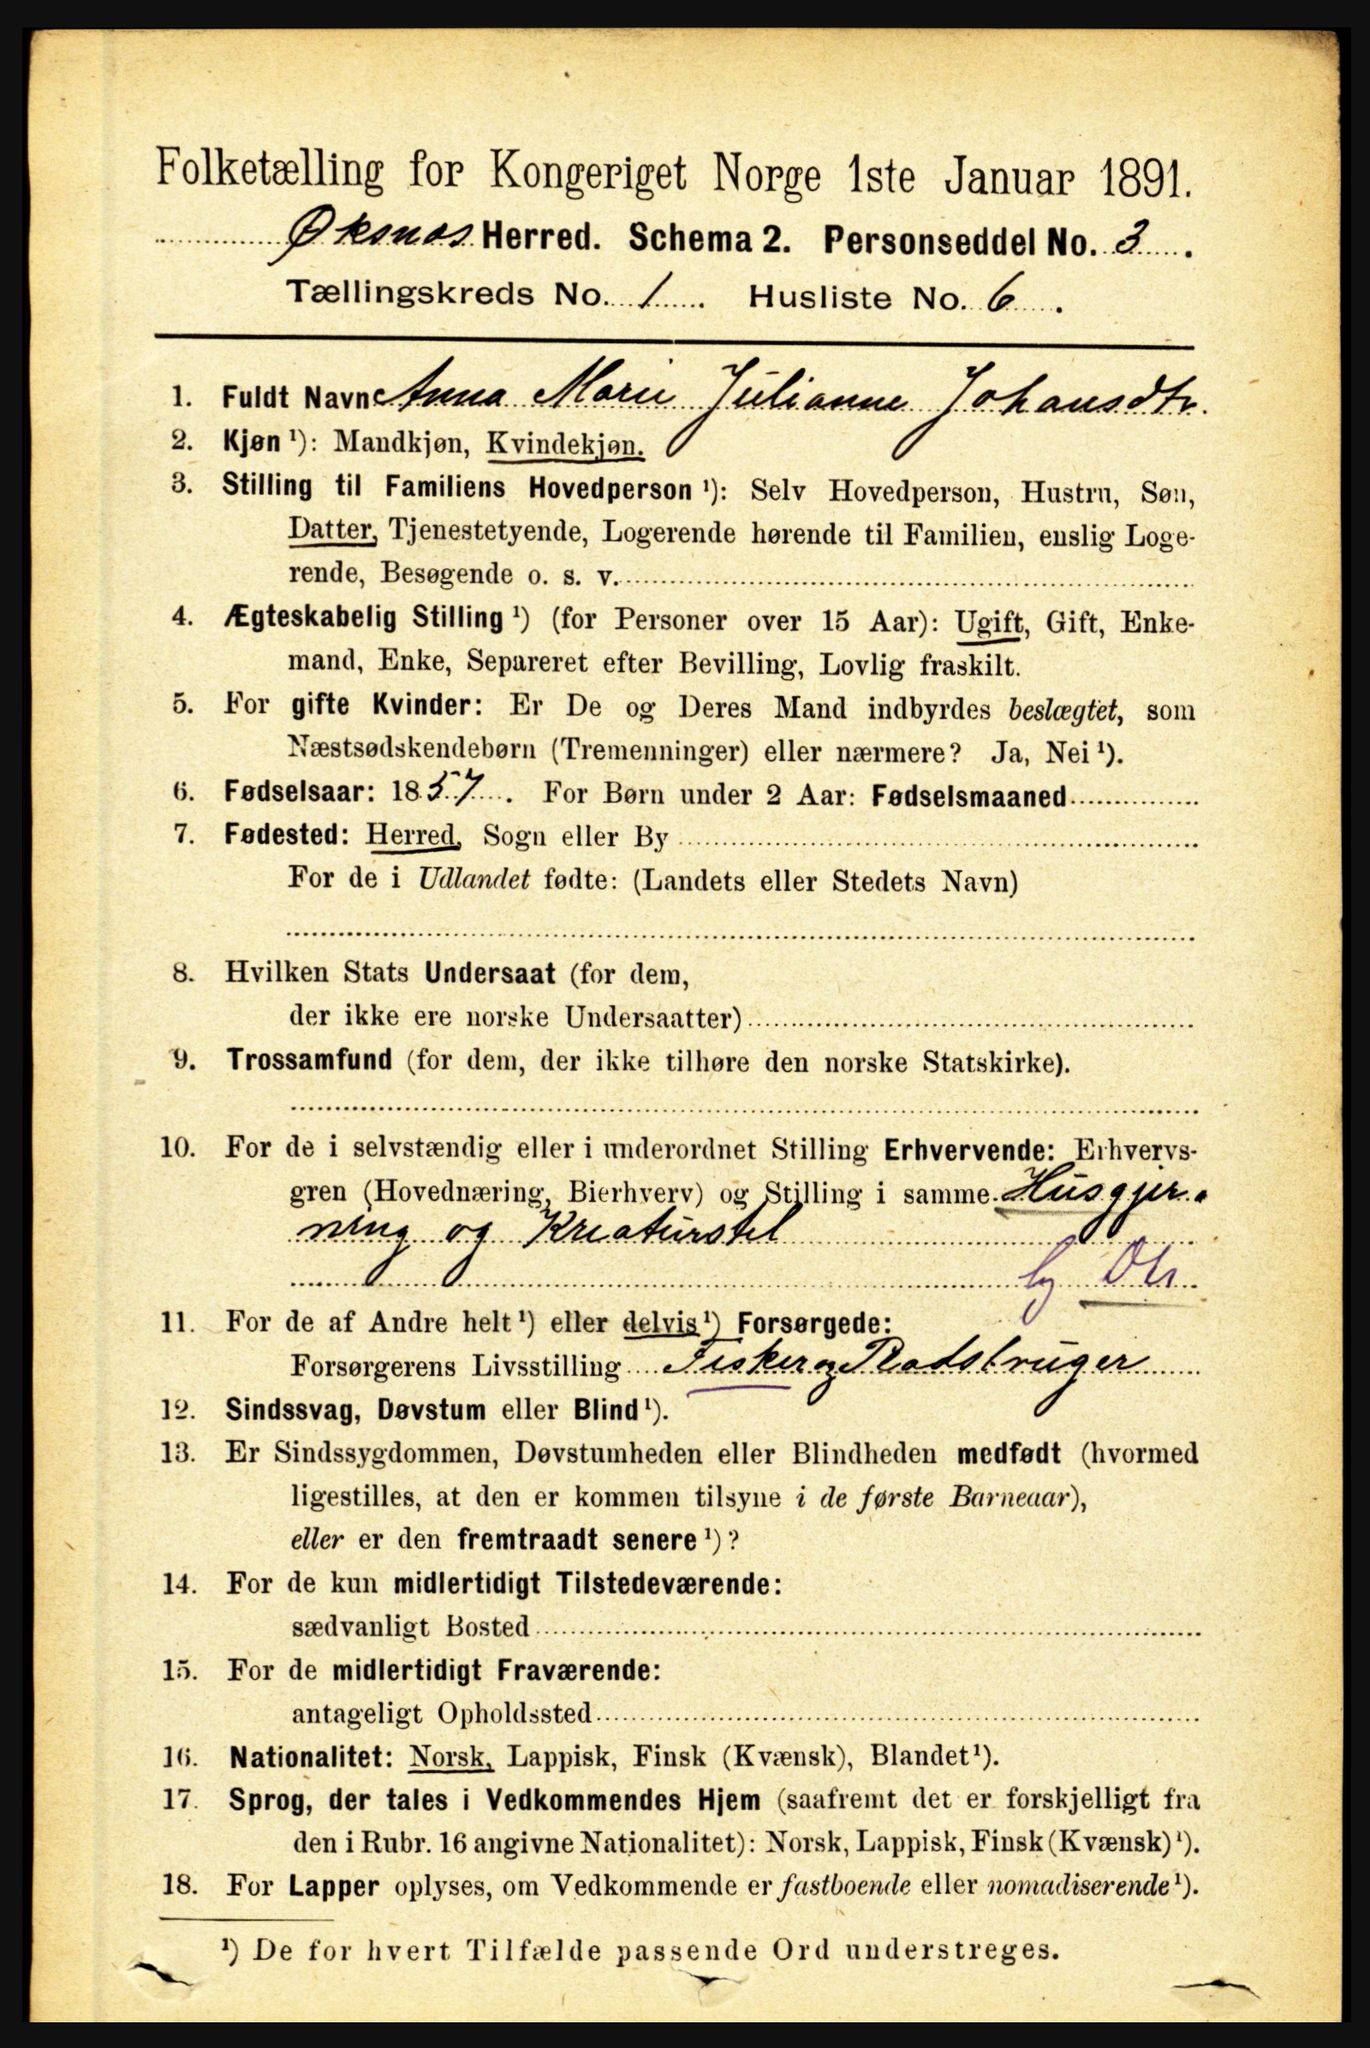 Folketælling for Kongeriget Norge 1ste Januar 1891.
Øksnes Herred. Schema 2. Personseddel No. 3.
Tællingskreds No. 1. Husliste No. 6.
1. Fuldt Navn: Anna Marie Julianne Johansdtr.
2. Kjøn ¹): Mandkjøn, Kvindekjøn.
3. Stilling til Familiens Hovedperson ¹): Selv Hovedperson, Hustru, Søn,
Datter, Tjenestetyende, Logerende hørende til Familien, enslig Loge-
rende, Besøgende o. s. v.
4. Ægteskabelig Stilling ¹) (for Personer over 15 Aar): Ugift, Gift, Enke-
mand, Enke, Separeret efter Bevilling, Lovlig fraskilt.
5. For gifte Kvinder: Er De og Deres Mand indbyrdes beslægtet, som
Næstsødskendebørn (Tremenninger) eller nærmere? Ja, Nei ¹).
6. Fødselsaar: 1857. For Børn under 2 Aar: Fødselsmaaned
7. Fødested: Herred, Sogn eller By
For de i Udlandet fødte: (Landets eller Stedets Navn)
8. Hvilken Stats Undersaat (for dem,
der ikke ere norske Undersaatter)
9. Trossamfund (for dem, der ikke tilhøre den norske Statskirke).
10. For de i selvstændig eller i underordnet Stilling Erhvervende: Erhvervs-
gren (Hovednæring, Bierhverv) og Stilling i samme Husgjer-
ning og Kreaturstel
11. For de af Andre helt ¹) eller delvis ¹) Forsørgede:
Forsørgerens Livsstilling Fisker og Pladsbruger
12. Sindssvag, Døvstum eller Blind ¹).
13. Er Sindssygdommen, Døvstumheden eller Blindheden medfødt (hvormed
ligestilles, at den er kommen tilsyne i de første Barneaar),
eller er den fremtraadt senere ¹)?
14. For de kun midlertidigt Tilstedeværende:
sædvanligt Bosted
15. For de midlertidigt Fraværende:
antageligt Opholdssted
16. Nationalitet: Norsk, Lappisk, Finsk (Kvænsk), Blandet ¹).
17. Sprog, der tales i Vedkommendes Hjem (saafremt det er forskjelligt fra
den i Rubr. 16 angivne Nationalitet): Norsk, Lappisk, Finsk (Kvænsk) ¹).
18. For Lapper oplyses, om Vedkommende er fastboende eller nomadiserende ¹).
¹) De for hvert Tilfælde passende Ord understreges.